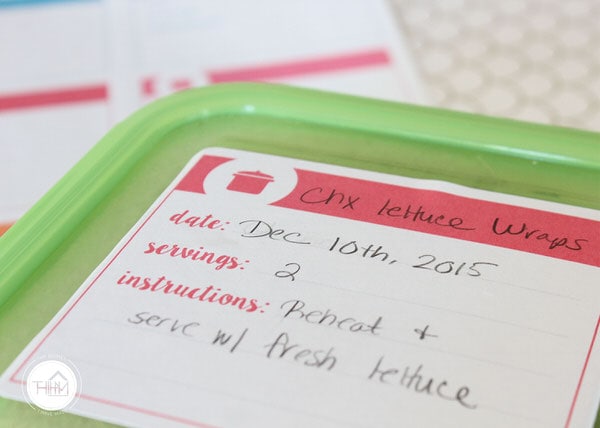 Chx lettuce Wraps
date: Dec 10th, 2015
servings: 2
instructions: Reheat +
serve w/ fresh lettuce